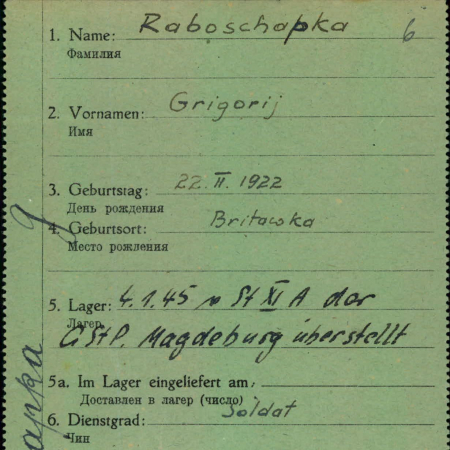 1. Name: Raboschapka 6
Фамилия
2. Vornamen: Grigorij
Имя
3. Geburtstag: 22. II. 1922
День рождения
4. Geburtsort: Britawka
Место рождения
5. Lager: 4.1.45 v St XI A der
Лагер
GStP. Magdeburg überstellt
5a. Im Lager eingeliefert am:
Доставлен в лагер (число)
6. Dienstgrad: Soldat
Чин
9
apka